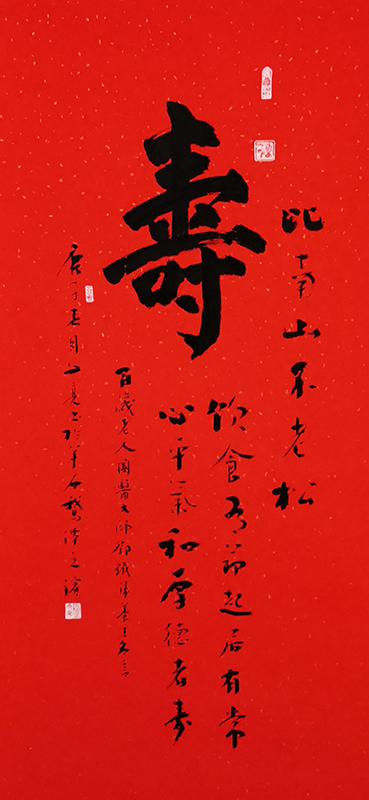 壽
比南山不老松
飲食有節起居有常
心平氣和厚德者壽
百歲老人國醫大師鄧鐵濤養生名言
庚子春月